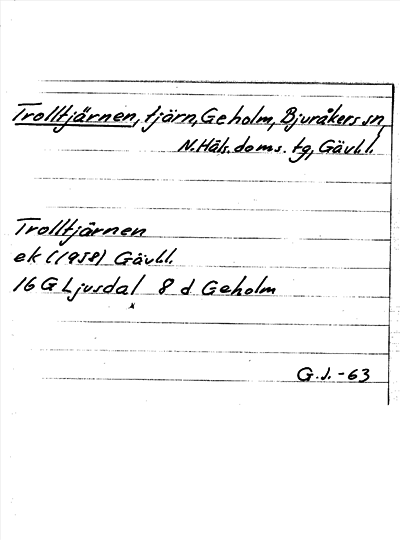 Trolltjärnen, tjärn, Geholm, Bjuråkers sn,
N. Häls. doms. tg, Gävl.l.
Trolltjärnen
ek (1958) Gävl.l.
16 G Ljusdal 8 d Geholm
G.J.-63